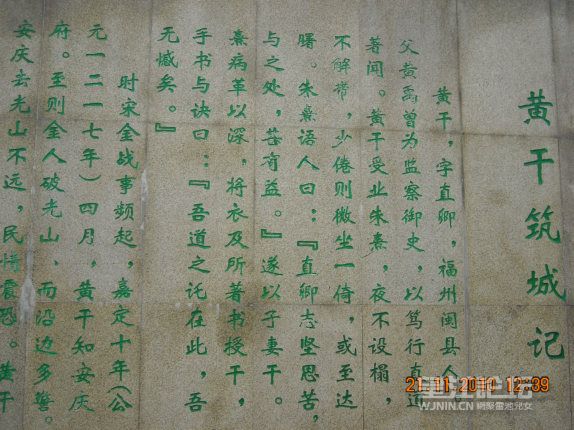 黄干筑城记
黄干，字直卿，福州闽县人
父黄禹曾为监察御史，以笃行直道
著闻。黄干受业朱熹，夜不设榻，
不解带，少倦则微坐一倚，或至达
曙。朱熹语人曰：『直卿志坚思苦，
与之处，甚有益。』遂以子妻干。
熹病革以深，将衣及所著书授干，
手书与诀曰：『吾道之托在此，吾
无憾矣。』
时宋金战事频起，嘉定十年(公
元一二一七年)四月，黄干知安庆
府。至则金人破光山，而沿边多警。
安庆去光山不远，民情震恐。黄干
21.11 12:39
望江论坛
WJNIN.CN 網聚雷池兒女